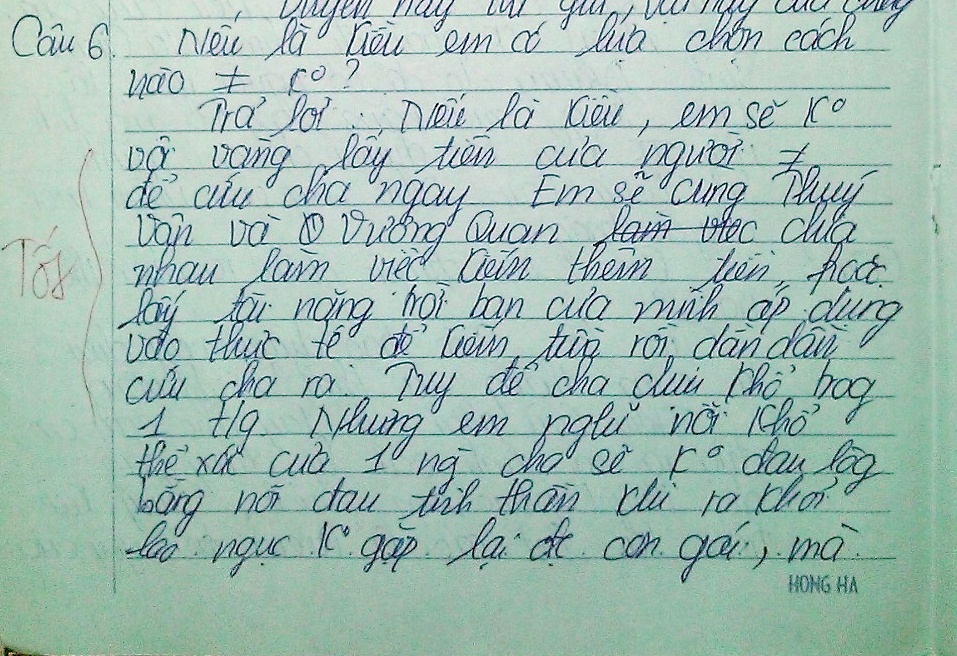 Duyên này thì giữ, vật này của chung
Câu 6. Nếu là Kiều em có lựa chọn cách
nào ≠ K°?
Trả lời: Nếu là Kiều, em sẽ K°
vội vàng lấy tiền của người ≠
để cứu cha ngay. Em sẽ cùng Thuý
Vân và Vương Quan làm việc chia
nhau làm việc kiếm thêm tiền, hoặc
lấy tài năng trời ban của mình áp dụng
vào thực tế để kiếm tiền rồi dần dần
cứu cha ra. Tuy để cha chịu khổ
1 t/g. Nhưng em nghĩ nỗi khổ
thể xác của 1 ng cha sẽ K° đau lòng
bằng nỗi đau tinh thần khi ra khỏi
lao ngục K° gặp lại đc con gái, mà
Tốt
HONG HA